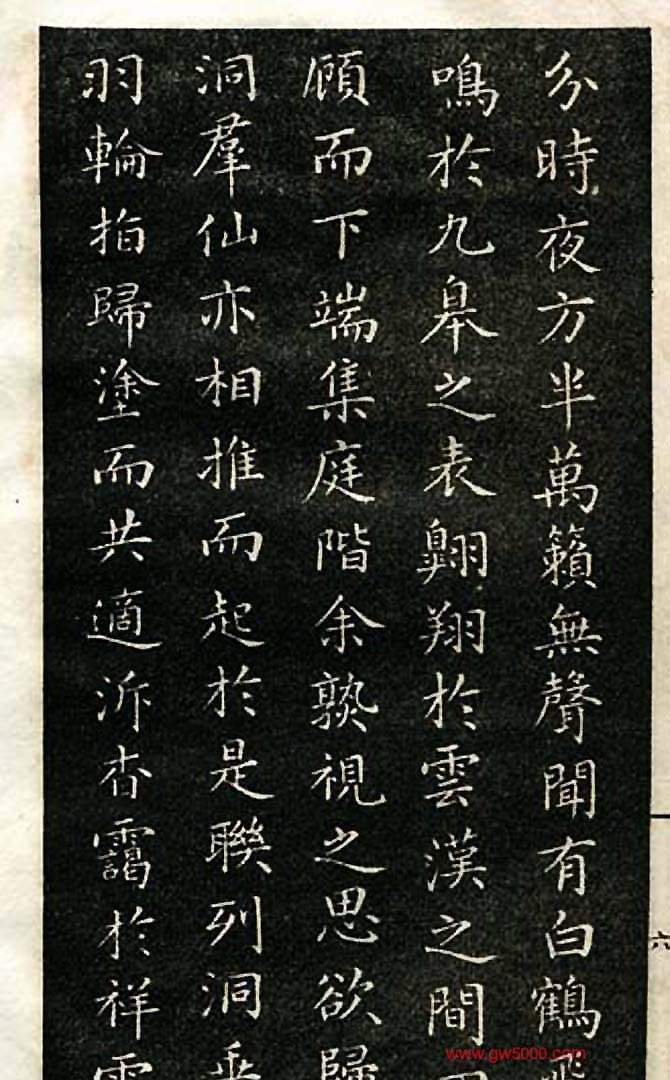 分時夜方半萬籟無聲聞有白鶴飛
鳴於九皋之表翺翔於雲漢之間
顧而下端集庭階余孰視之思欲歸
洞羣仙亦相推而起於是聯列洞
羽輪指歸塗而共適泝杏靄於祥雲
六
www.gw5000.com